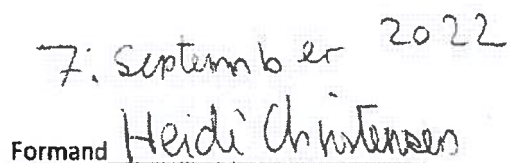 7. September 2022
Formand Heidi Christensen